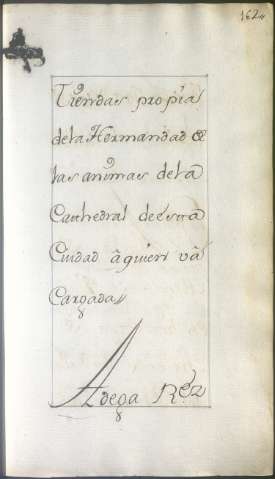 162
Tiendas propia
de la Hermandad de
las animas de la
Cathedral de esta
Ciudad â quien vâ
Cargada
Adega Rez